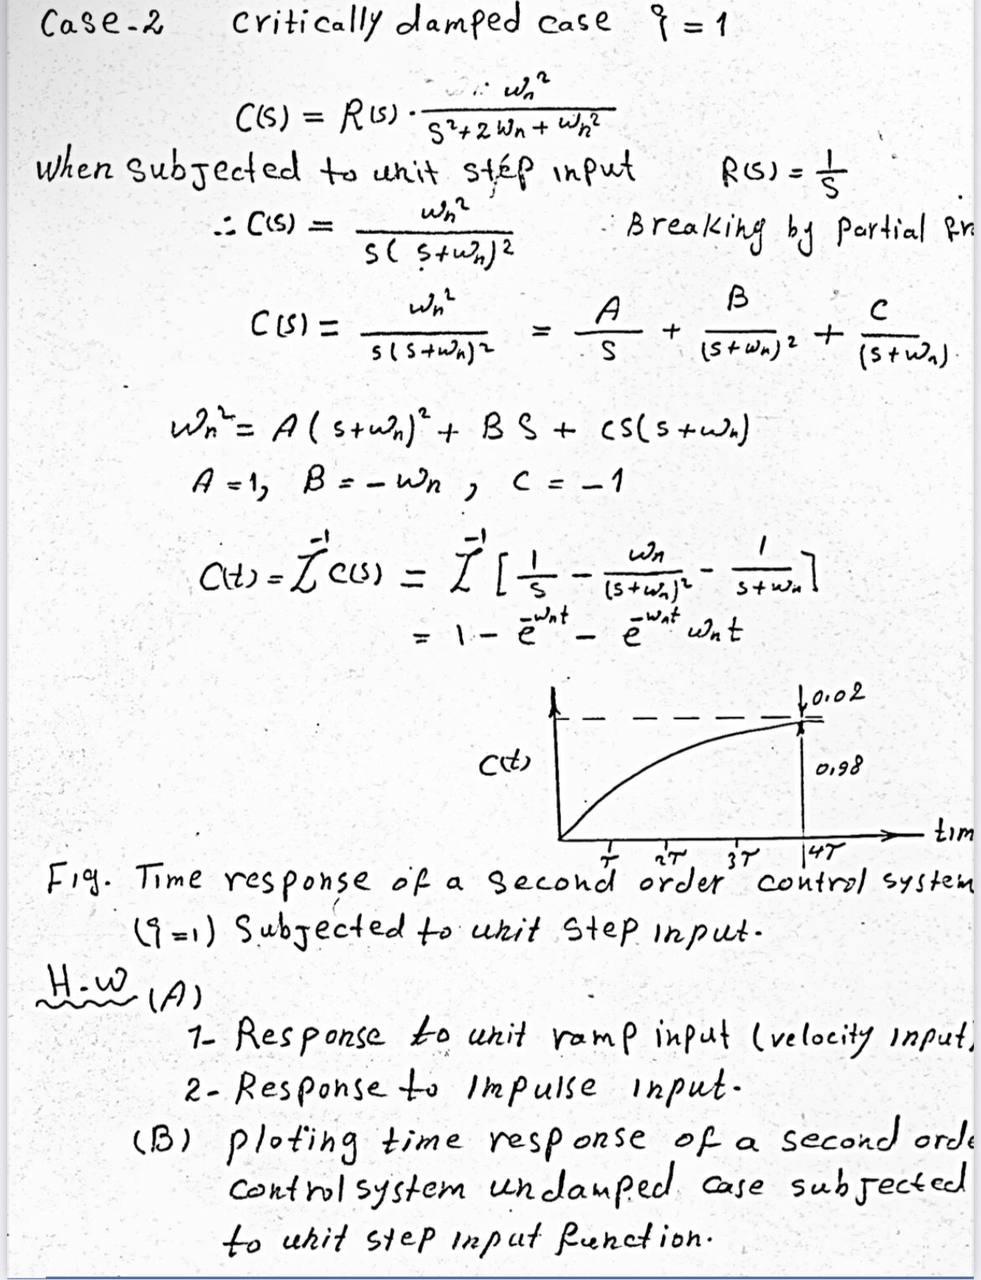 Case-2 critically damped case ξ = 1
C(S) = R(S) · ωn² / S²+2ωn+ωn²
when subjected to unit step input R(S) = 1/S
∴ C(S) = ωn² / S(S+ωn)² Breaking by partial
C(S) = ωn² / S(S+ωn)² = A/S + B/(S+ωn)² + C/(S+ωn)
ωn² = A(S+ωn)² + BS + CS(S+ωn)
A=1, B=-ωn, C=-1
C(t) = ℒ⁻¹ C(S) = ℒ⁻¹ [1/S - ωn/(S+ωn)² - 1/S+ωn]
= 1 - e^-ωnt - e^-ωnt ωnt
0.02
C(t)
0.98
tim
τ 2τ 3τ 4τ
Fig. Time response of a second order control system
(ξ=1) Subjected to unit step input.
H.W (A)
1- Response to unit ramp input (velocity input)
2- Response to Impulse input.
(B) ploting time response of a second orde
control system undamped case subjected
to unit step input function.